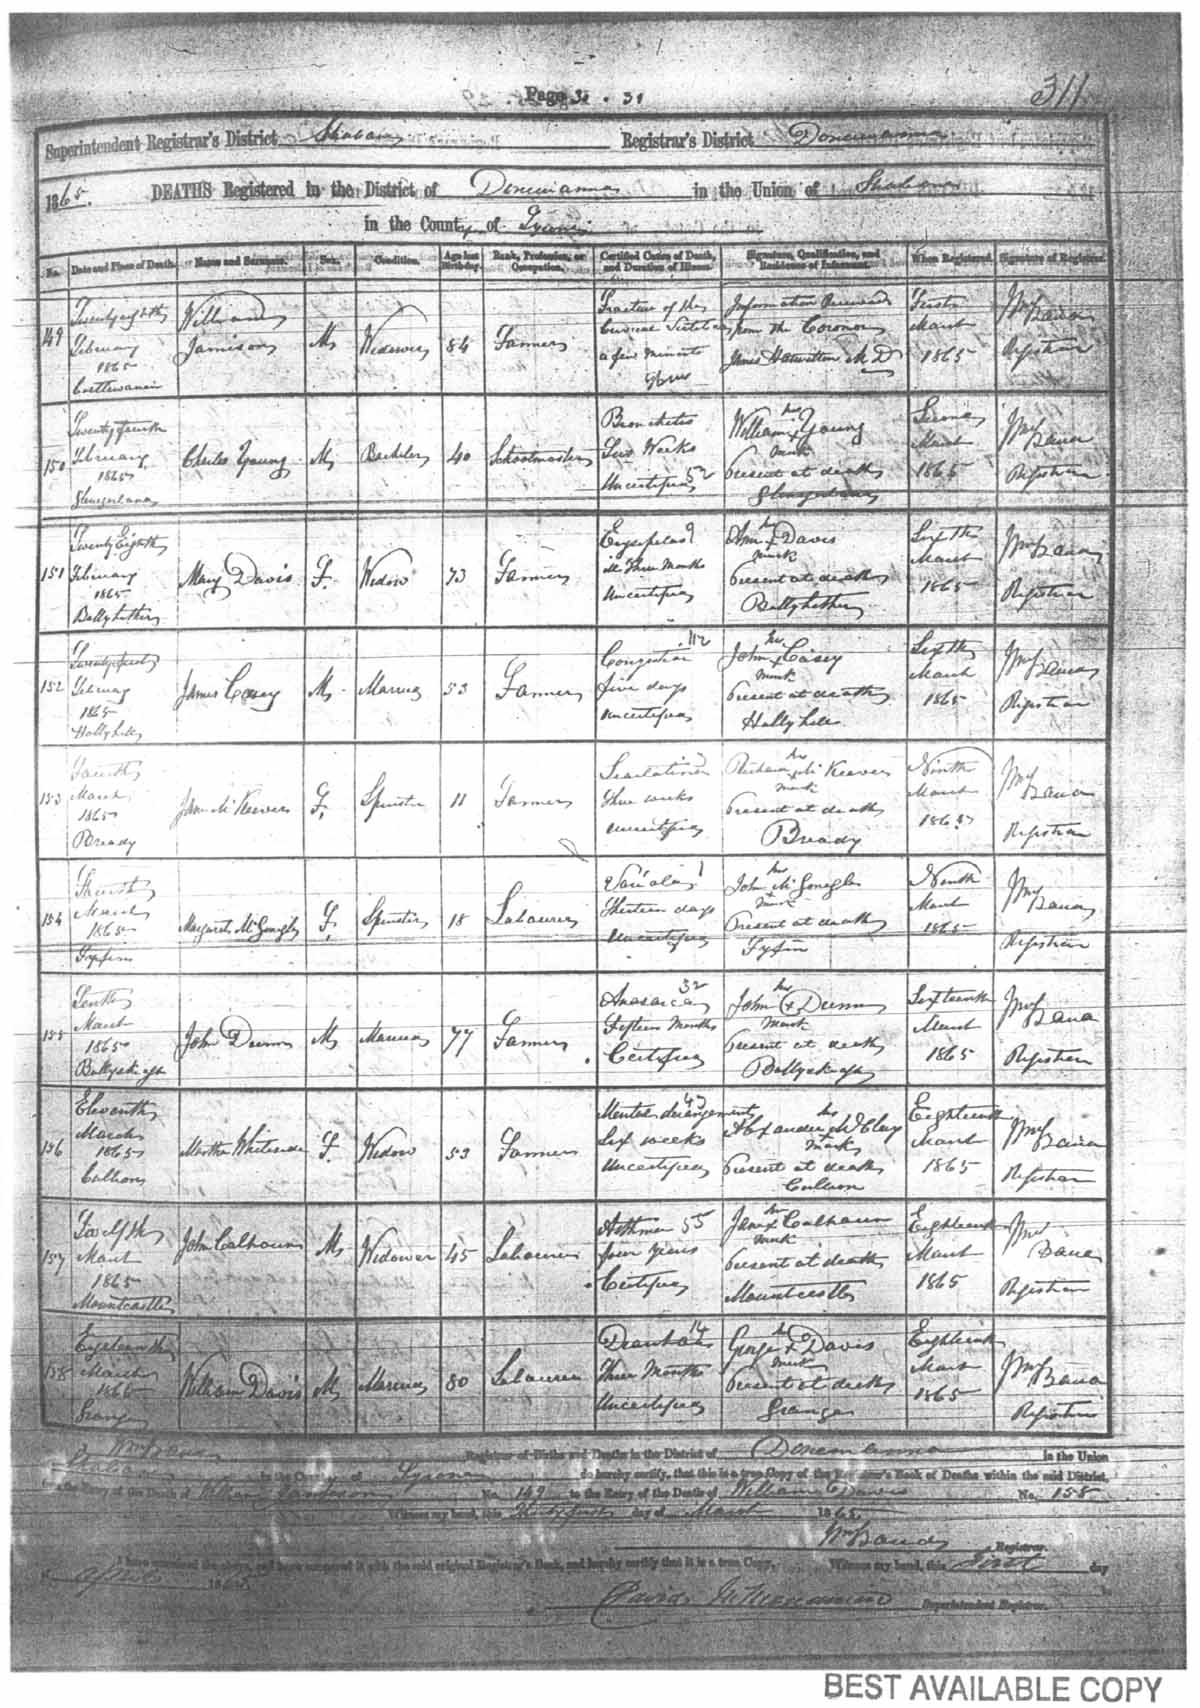 Page 31. 31
311
Superintendent Registrar's District Strabane Registrar's District Donemanna
1865. DEATHS Registered in the District of Donemanna in the Union of Strabane
in the County of Tyrone
No. Date and Place of Death. Name and Surname. Sex. Condition. Age last Birthday. Rank, Profession, or Occupation. Certified Cause of Death, and Duration of Illness. Signature, Qualification, and Residence of Informant. When Registered. Signature of Registrar.
149 Twenty eighth February 1865 William Jamison M Widower 84 Farmer Fracture of the Cervical a few minutes Information Received from the Coroner James M D First March 1865 Wm Bana Registrar
150 February 1865 Charles Young M Bachelor 40 Schoolmaster Bronchitis Two Weeks Uncertified 52 William Young his mark Present at death March 1865 Wm Bana Registrar
151 Twenty Eighth February 1865 Mary Davis F. Widow 73 Farmer Erysipelas Three Months Uncertified Davis mark Present at death Sixth March 1865 Wm Bana Registrar
152 February 1865 Hollyhill James Casey M Married 53 Farmer Congestion 112 five days Uncertified John Casey his mark Present at death Hollyhill Sixth March 1865 Wm Bana Registrar
153 Fourth March 1865 Bready Jane McKeever F. Spinster 11 Farmer Scarlatina Three weeks Uncertified McKeever his mark Present at death Bready Ninth March 1865 Wm Bana Registrar
154 March 1865 Margaret McGonigle F. Spinster 18 Labourer Variola 1 Thirteen days Uncertified John McGonigle his mark Present at death Ninth March 1865 Wm Bana Registrar
155 Tenth March 1865 John Dunn M Married 77 Farmer Anasarca 32 Fifteen Months Certified John Dunn his mark Present at death Sixteenth March 1865 Wm Bana Registrar
156 Eleventh March 1865 Cullion Martha Whiteside F. Widow 53 Farmer Mental derangement 43 Six weeks Uncertified Alexander McClay his mark Present at death Cullion Eighteenth March 1865 Wm Bana Registrar
157 Twelfth March 1865 Mountcastle John Calhoun M Widower 45 Labourer Asthma 55 four years Certified Calhoun mark Present at death Mountcastle Eighteenth March 1865 Wm Bana Registrar
158 Eighteenth March 1865 Grange William Davis M Married 80 Labourer Diarrhoea 14 Three Months Uncertified George Davis his mark Present at death Grange Eighteenth March 1865 Wm Bana Registrar
Wm Bana Registrar of Births and Deaths in the District of Donemanna in the Union
Strabane in the County of Tyrone do hereby certify, that this is a true Copy of the Registrar's Book of Deaths within the said District,
the Entry of the Death of William Jamison No. 149 to the Entry of the Death of William Davis No. 158
Witness my hand, this Thirty first day of March 1865.
Wm Bana Registrar.
I have examined the above, and have compared it with the said original Registrar's Book, and hereby certify that it is a true Copy. Witness my hand, this First day
April 1865
David Superintendent Registrar.
BEST AVAILABLE COPY